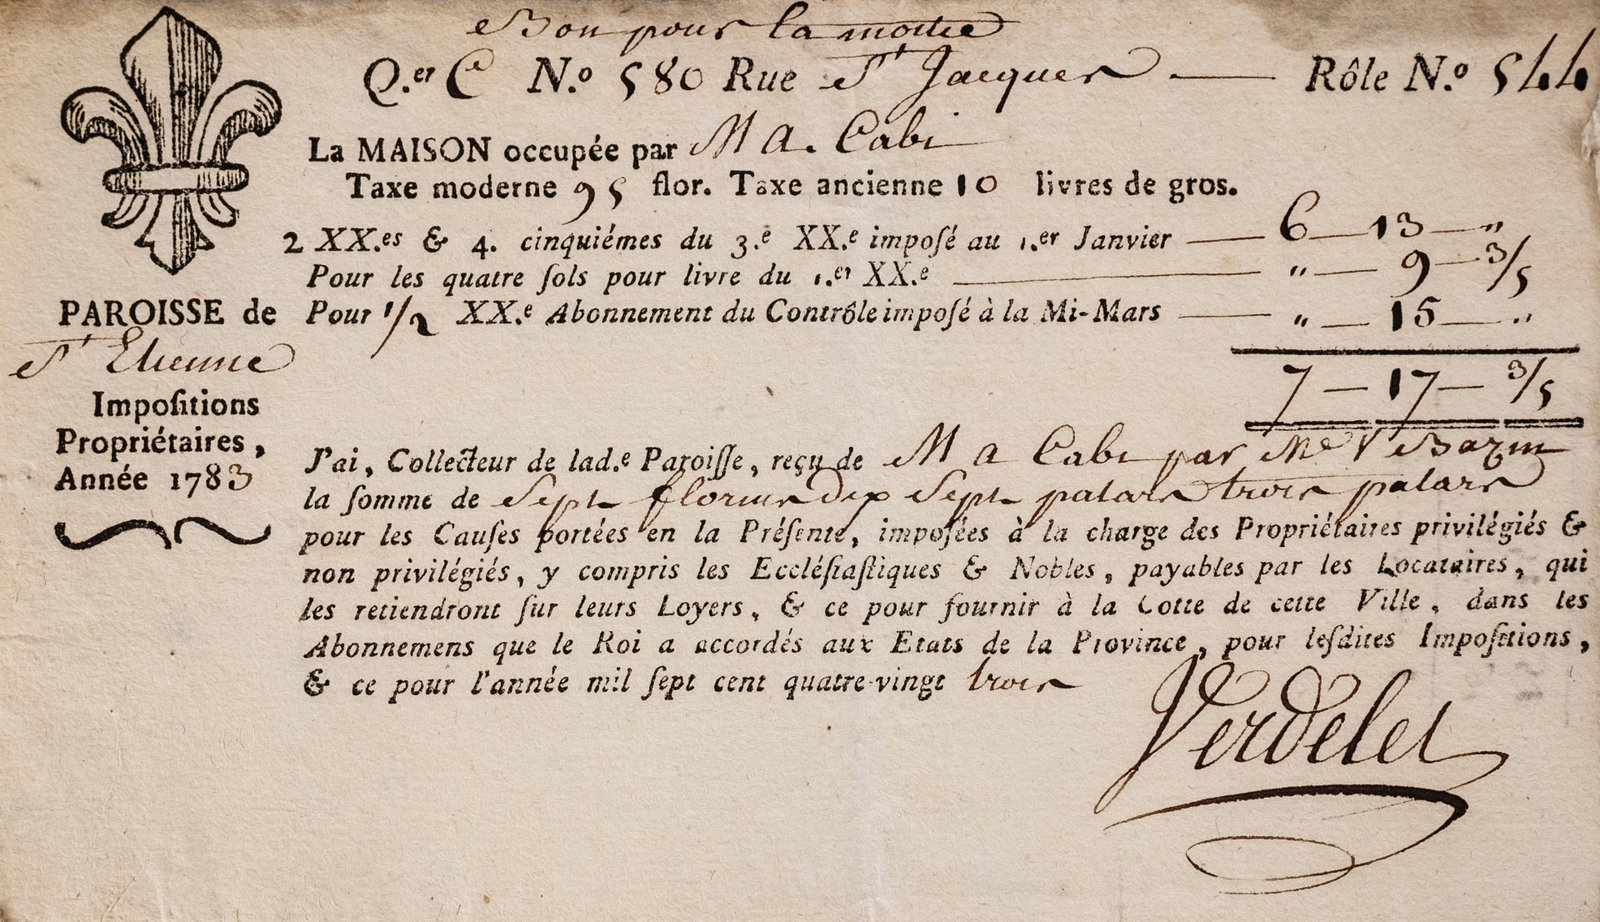 Bon pour la moitié
Q.er C N.o 580 Rue St Jacques — Rôle N.o 544
La MAISON occupée par M A. Cabi
Taxe moderne 95 flor. Taxe ancienne 10 livres de gros.
2 XX.es & 4. cinquiémes du 3.e XX.e imposé au 1.er Janvier — 6 — 13 — „
Pour les quatre ſols pour livre du 1.er XX.e — „ — 9 — 3/5
Pour 1/2 XX.e Abonnement du Contrôle imposé à la Mi-Mars — „ — 15 — „
7 — 17 — 3/5
PAROISSE de
St Etienne
Impoſitions
Propriétaires,
Année 1783
J'ai, Collecteur de lad.e Paroiſſe, reçu de M A Cabi par Me V Bazin
la ſomme de Sept florins dix Sept patars trois patars
pour les Cauſes portées en la Préſente, imposées à la charge des Propriétaires privilégiés &
non privilégiés, y compris les Eccléſiaſtiques & Nobles, payables par les Locataires, qui
les retiendront ſur leurs Loyers, & ce pour fournir à la Cotte de cette Ville, dans les
Abonnemens que le Roi a accordés aux Etats de la Province, pour leſdites Impoſitions,
& ce pour l'année mil ſept cent quatre-vingt trois
Verdelet